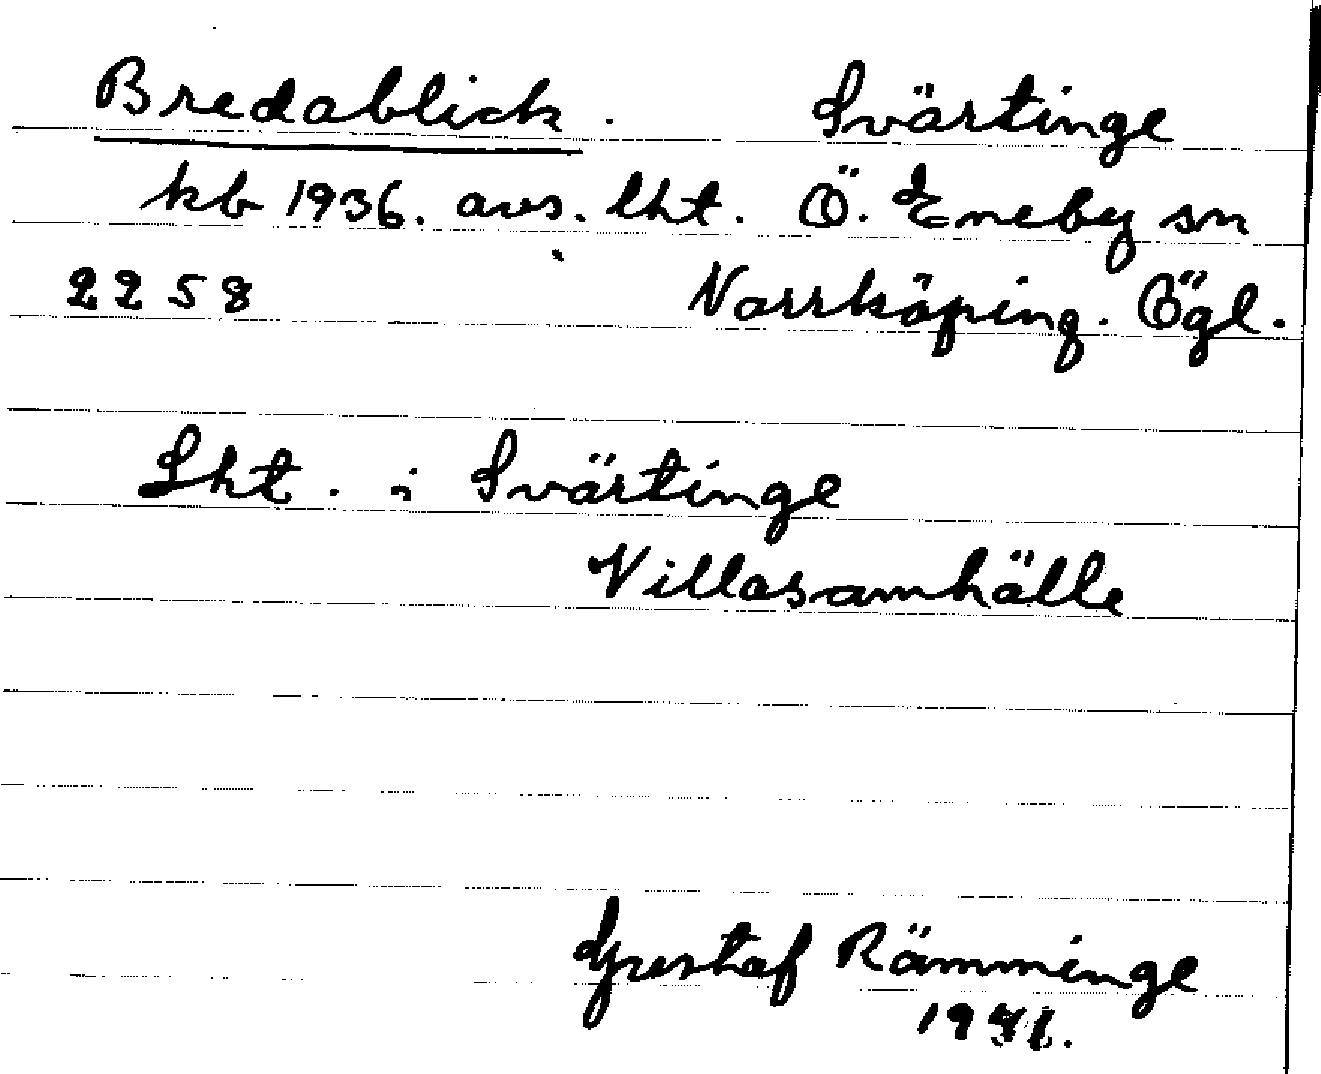 Bredablick. Svärtinge
kb 1936. avs. lht. Ö. Eneby sn
2258 Norrköping. Ögl.
Lht. i Svärtinge
Villasamhälle
Gustaf Rämminge